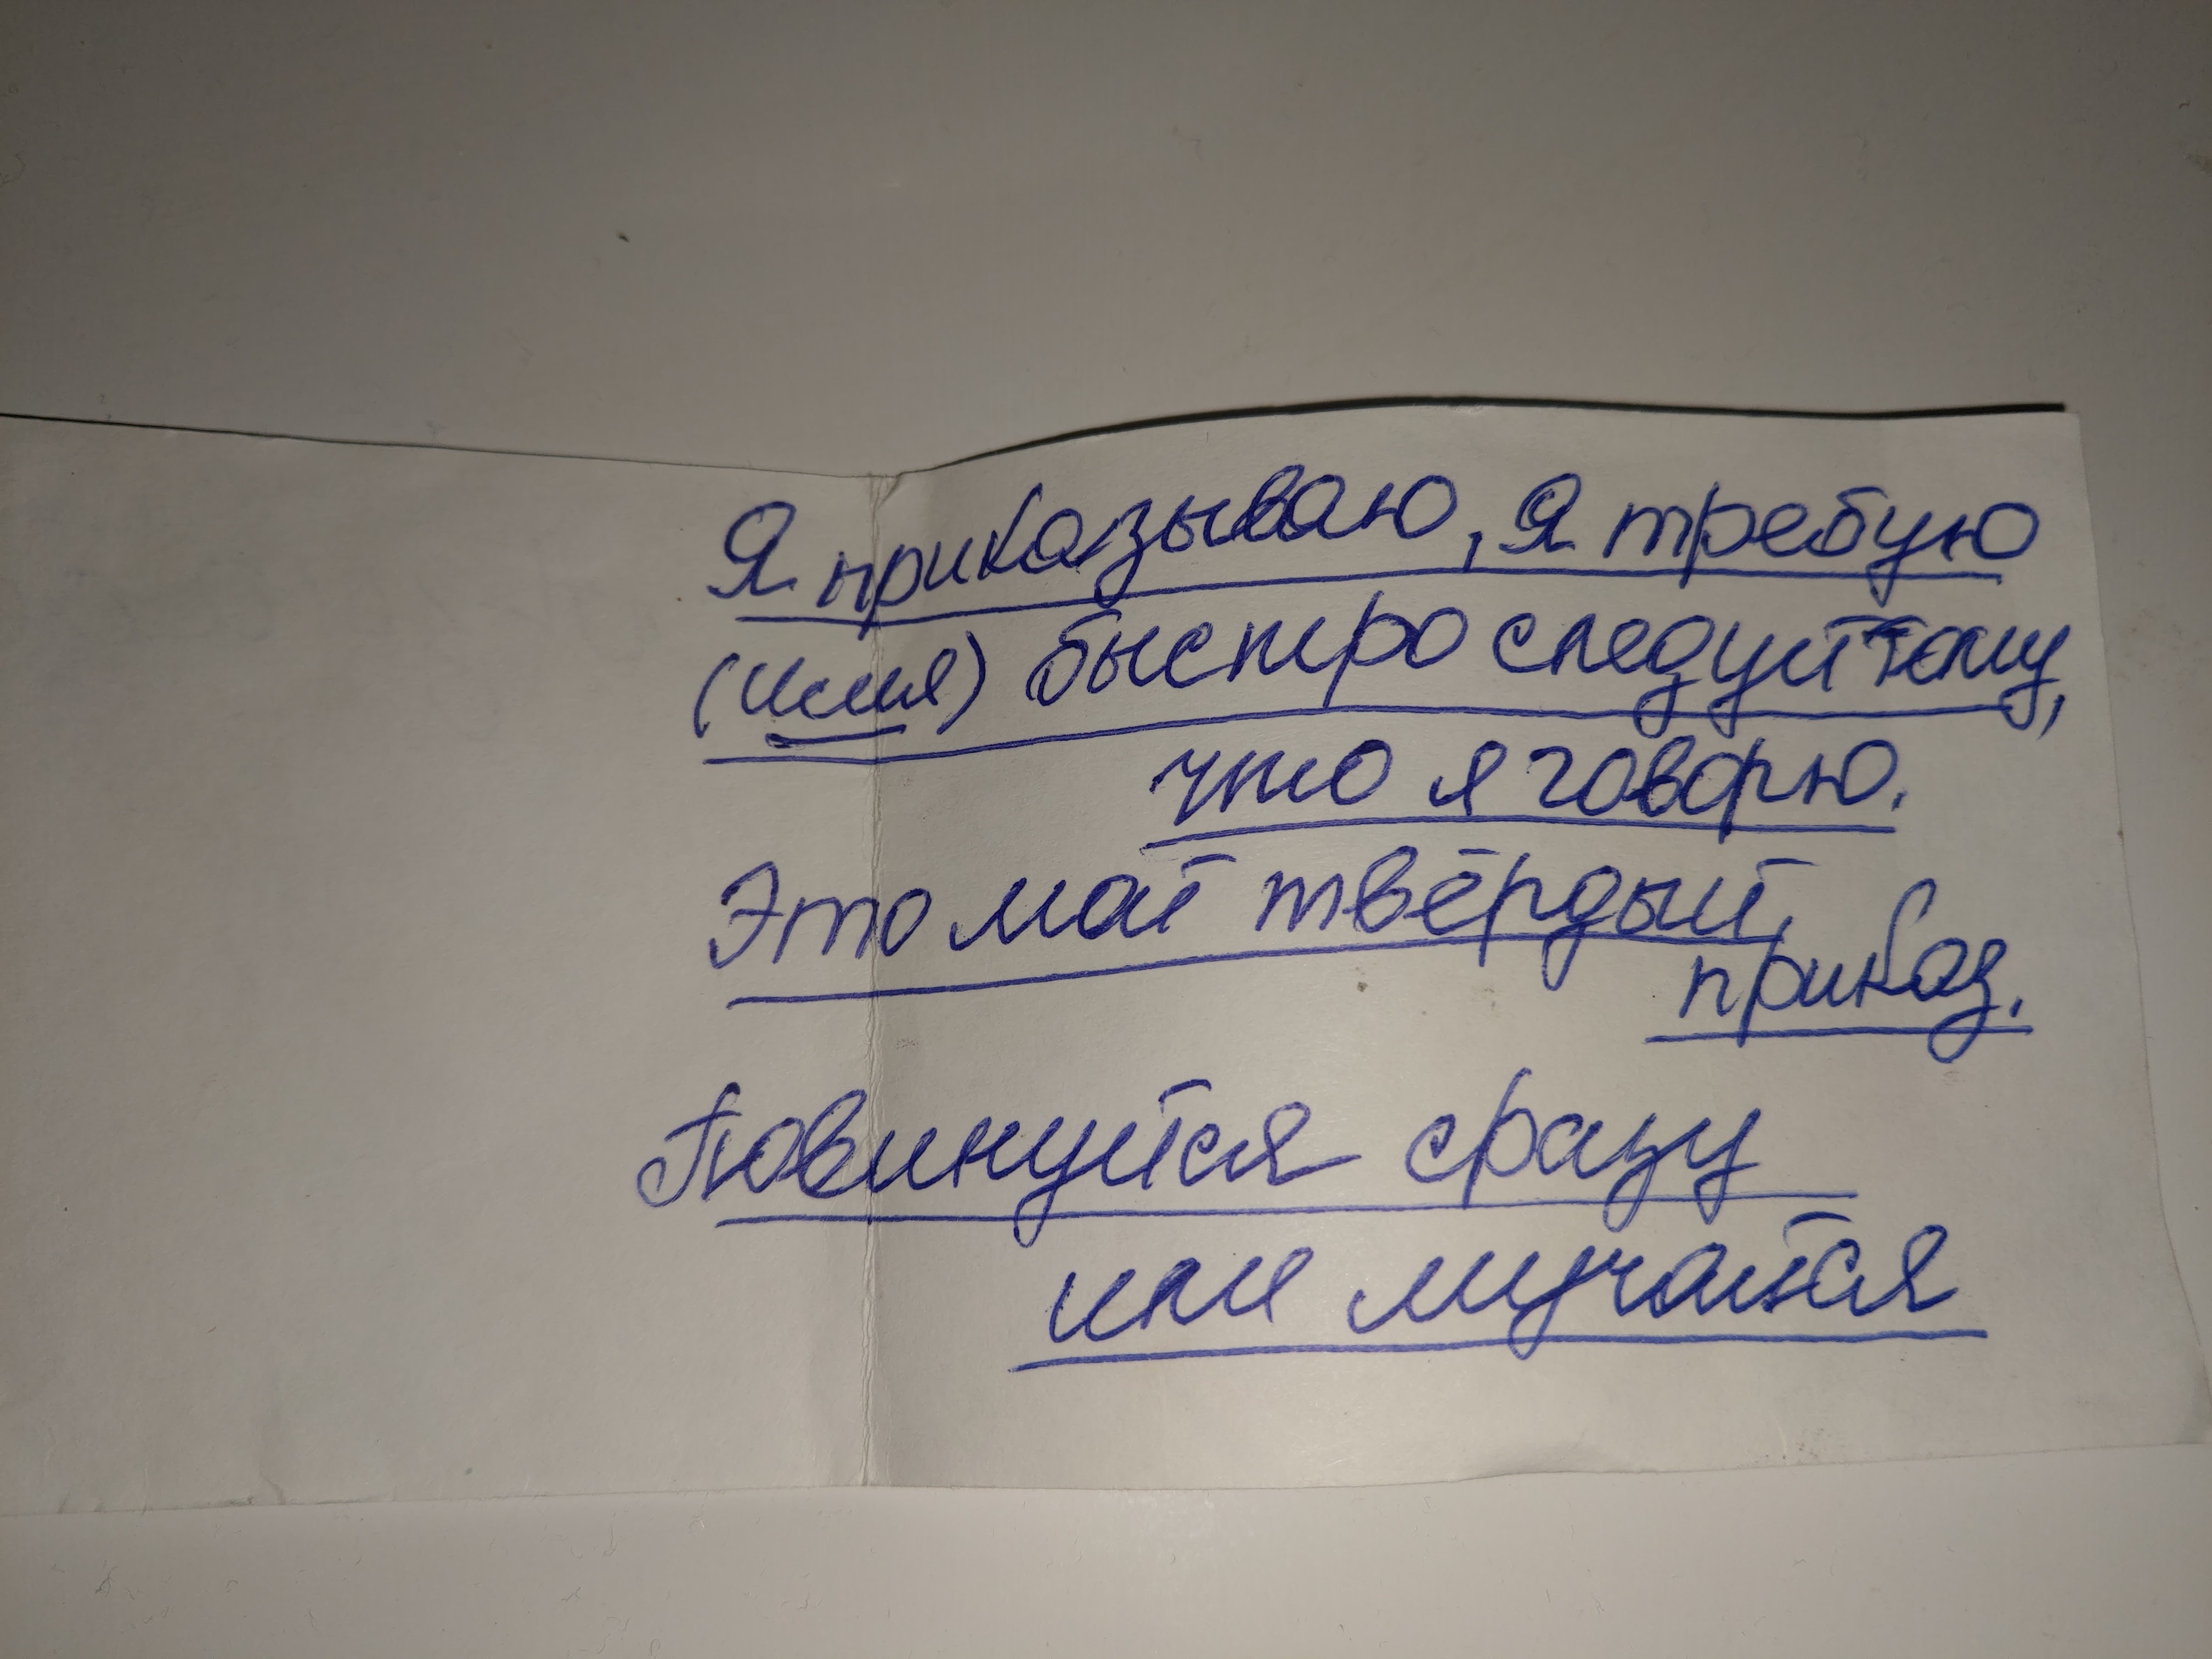 Я приказываю, Я требую
(имя) быстро следуй тому,
что я говорю.
Это мой твёрдый
приказ.
Повинуйся сразу
или мучайся